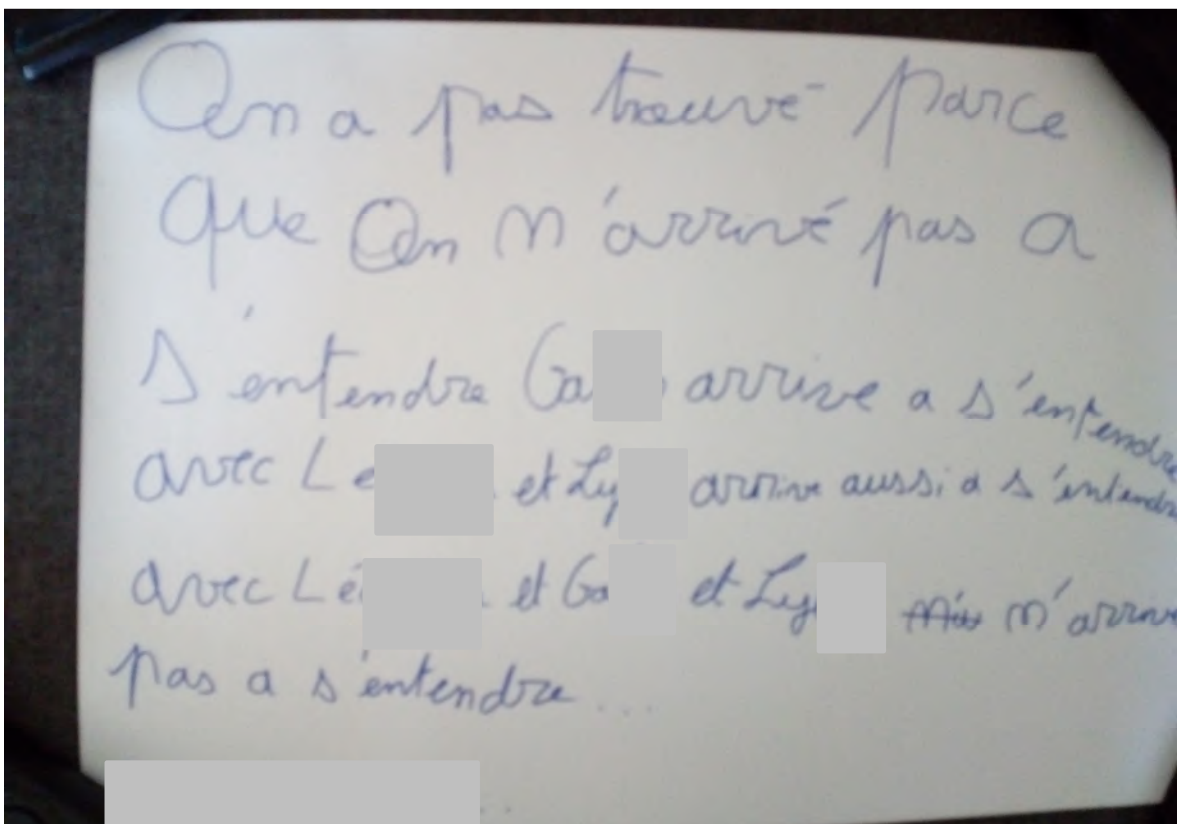 On a pas trouvé parce
que On n'arrivé pas a
s'entendre Ga arrive a s'entendre
avec Le et Ly arrive aussi a s'entendre
avec Lé et Ga et Ly n'arrive
pas a s'entendre...